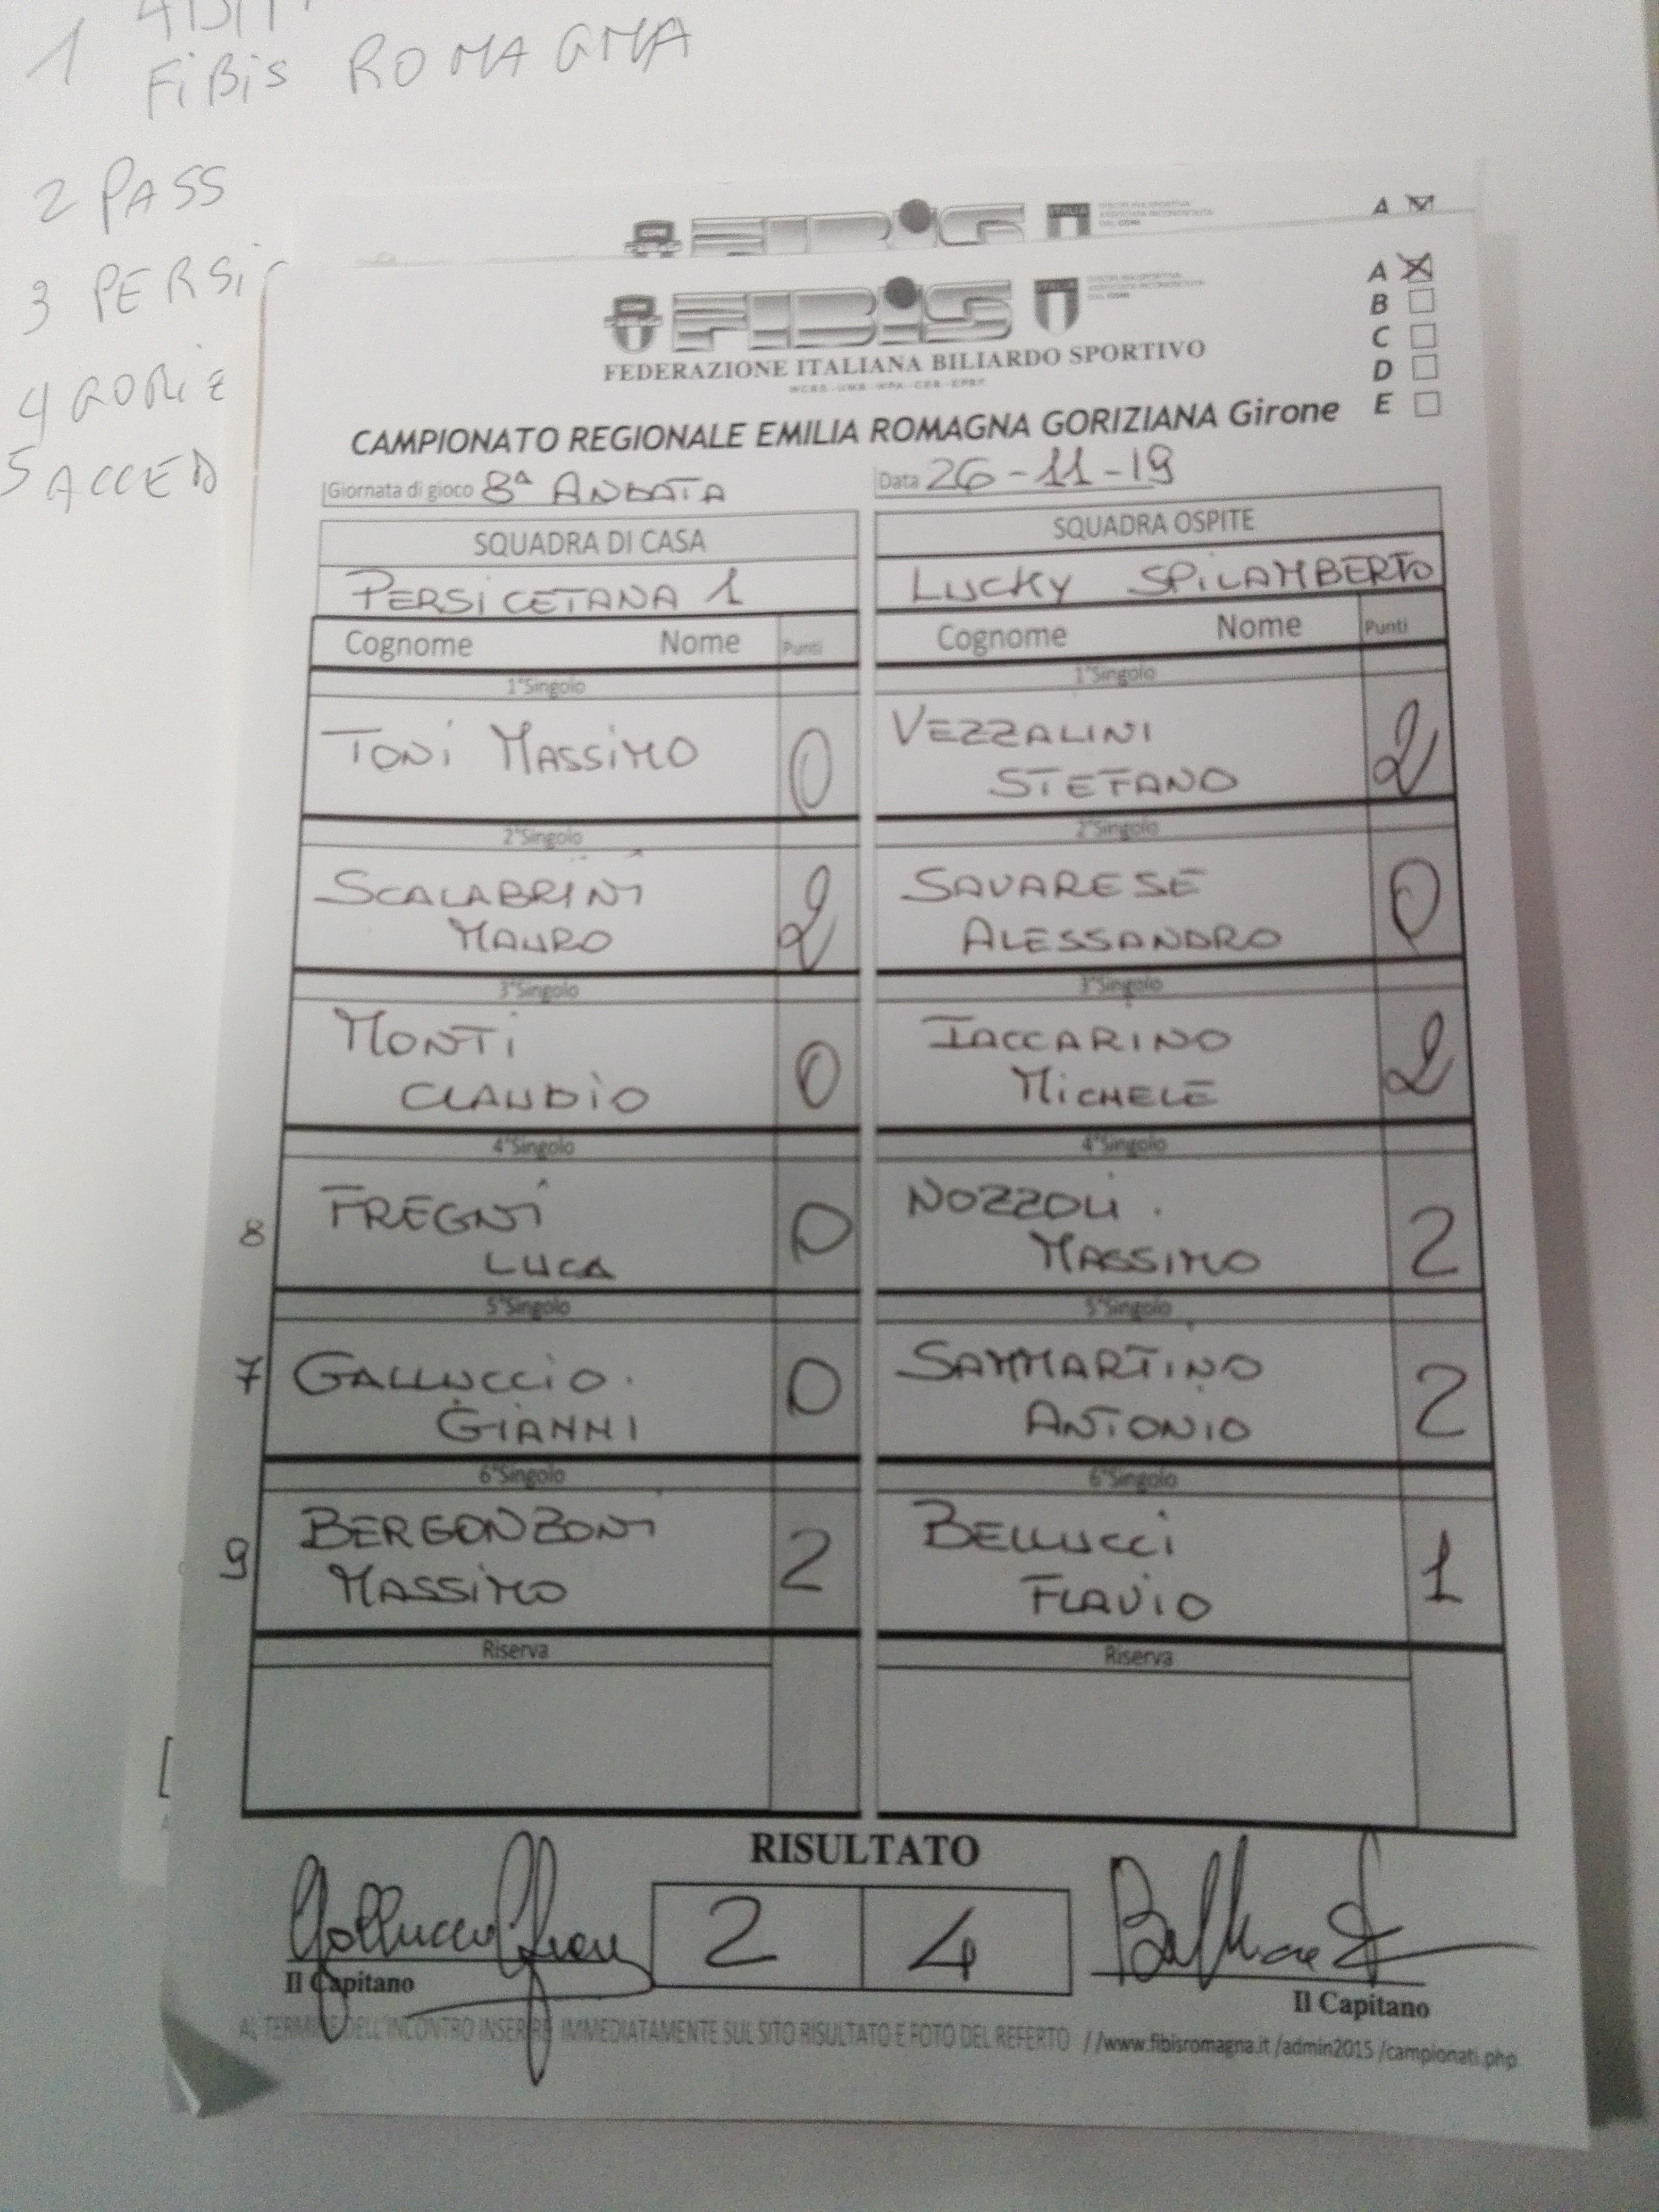 1
FiBiS ROMAGNA
2 PASS
3 PERSi
4 GORiZ
5 ACCED
A
FIBiS
ITALIA
A
B
C
D
E
FEDERAZIONE ITALIANA BILIARDO SPORTIVO
CAMPIONATO REGIONALE EMILIA ROMAGNA GORIZIANA Girone
Giornata di gioco 8ª ANDATA Data 26-11-19
SQUADRA DI CASA SQUADRA OSPITE
PERSICETANA 1 LUCKY SPILAMBERTO
Cognome Nome Punti Cognome Nome Punti
1°Singolo 1°Singolo
TONI MASSIMO 0 VEZZALINI
STEFANO 2
2°Singolo 2°Singolo
SCALABRINI 2 SAVARESE 0
MAURO ALESSANDRO
3°Singolo 3°Singolo
MONTI 0 IACCARINO 2
CLAUDIO MICHELE
4°Singolo 4°Singolo
8 FREGNI 0 NOZZOLI. 2
LUCA MASSIMO
5°Singolo 5°Singolo
7 GALLUCCIO. 0 SAMMARTINO 2
GIANNI ANTONIO
6°Singolo 6°Singolo
9 BERGONZONI 2 BELLUCCI 1
MASSIMO FLAVIO
Riserva Riserva
RISULTATO
2 4
Il Capitano Il Capitano
AL TERMINE DELL'INCONTRO INSERIRE IMMEDIATAMENTE SUL SITO RISULTATO E FOTO DEL REFERTO //www.fibisromagna.it /admin2015 /campionati.php